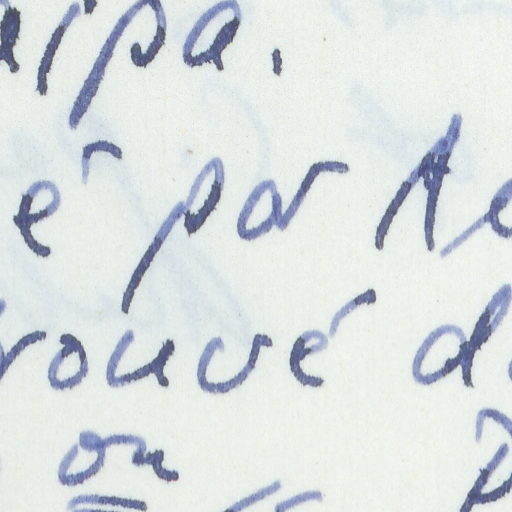 aipa.
é par Le
rouvé d
on